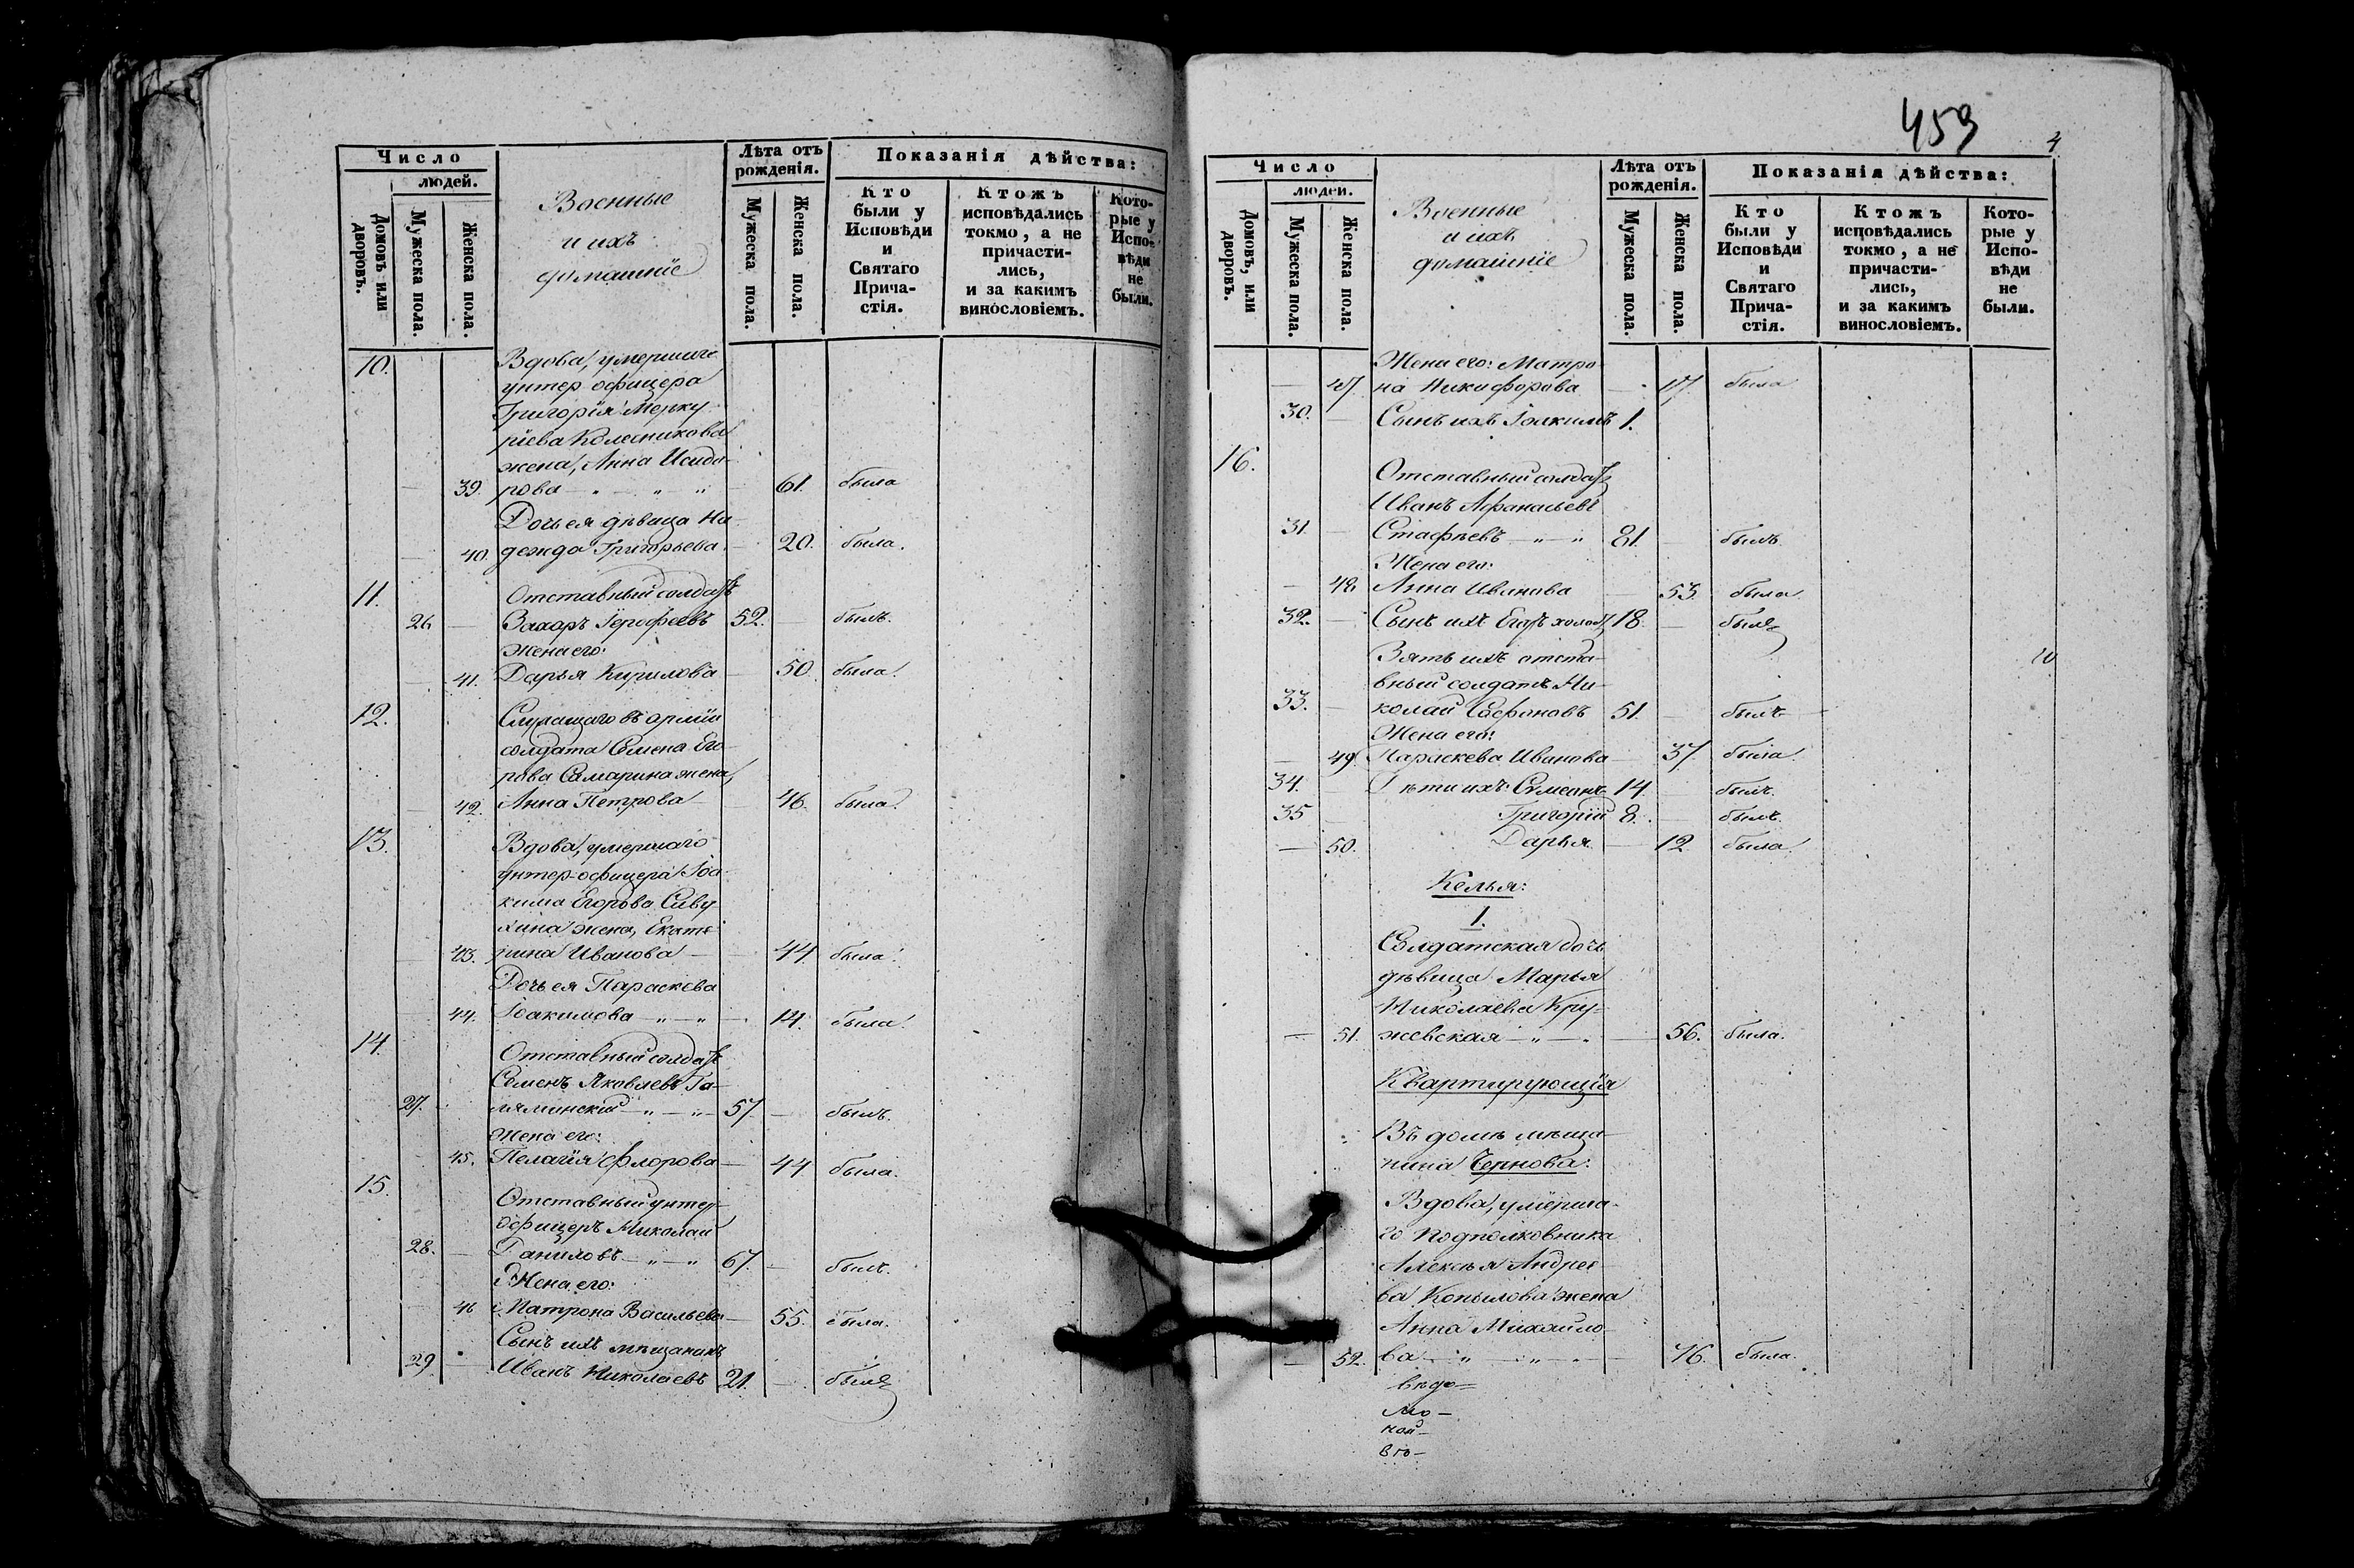 Число
людей.
Домовъ или дворовъ.
Мужеска пола.
Женска пола.
Военные
и ихъ
домашніе
Лѣта отъ рожденія.
Мужеска пола.
Женска пола.
Показанія дѣйства:
Кто были у Исповѣди и Святаго Прича-стія.
Ктожъ исповѣдались токмо, а не причасти-лись, и за какимъ винословіемъ.
Кото-рые у Испо-вѣди не были.
10. Вдова, умершаго
унтер офицера
Григорія Мерку
ріева Колесникова
жена, Анна Исидо-
— 39. рова — „ — „ — „ — 61. была
Дочь ея дѣвица На
— 40. дежда Григорьева. — 20. была.
11. Отставный солдатъ
26 — Захаръ Іерофеевъ 52. — былъ.
Жена его:
— 41. Дарья Кирилова — 50. была.
12. Служащаго въ арміи
солдата Семена Его-
рова Самарина жена,
— 42. Анна Петрова — 46. была.
13. Вдова, умершаго
унтер-офицера Іоа-
кима Егорова Саву
хина жена, Екате
— 43. рина Иванова — 44. была.
Дочь ея Параскева
— 44. Іоакимова — „ — „ — 14. была.
14. Отставный солдатъ
Семенъ Яковлевъ Га-
27. — мянскій — „ — „ — 57. — былъ.
Жена его:
— 45. Пелагія Флорова — 44 была.
15. Отставный унтер-
офицеръ Николай
28. — Даниловъ — „ — „ 67. — былъ.
Жена его:
— 46 Матрона Васильева — 55. была.
Сынъ ихъ мѣщанинъ
29. — Иванъ Николаевъ 21. — былъ
453
4
Число
людей.
Домовъ, или дворовъ.
Мужеска пола.
Женска пола.
Военные
и ихъ
домашніе
Лѣта отъ рожденія.
Мужеска пола.
Женска пола.
Показанія дѣйства:
Кто были у Исповѣди и Святаго Прича-стія.
Ктожъ исповѣдались токмо, а не причасти-лись, и за какимъ винословіемъ.
Кото-рые у Испо-вѣди не были.
Жена его: Матро
— 47. на Никифорова — 17 была
30. — Сынъ ихъ Іоакимъ 1.
16. Отставный солдатъ
Иванъ Афанасьевъ
31. — Стафѣевъ — „ — „ 81. — былъ.
Жена его:
— 48. Анна Иванова — 53. была.
32. — Сынъ ихъ Егоръ холост 18. — былъ
Зять ихъ отста-
вный солдатъ Ни-
33. — колай Сафоновъ 51. — былъ
Жена его:
— 49. Параскева Иванова — 37. была.
34. — Дѣти ихъ: Симеонъ 14. — былъ.
35 — Григорій 8. — былъ.
— 50. Дарья — 12 была.
Келья:
1.
Солдатская дочь
дѣвица Марья
Николаева Кру-
— 51. жевская — „ — „ — 56. была.
Квартирующія
Въ домѣ мѣща
нина Чернова:
Вдова, умерша-
го Подполковника
Алексѣя Андрее
ва Копылова жена
Анна Михайло-
— 52. ва — „ — „ — 76. была.
вѣдо-
мо-